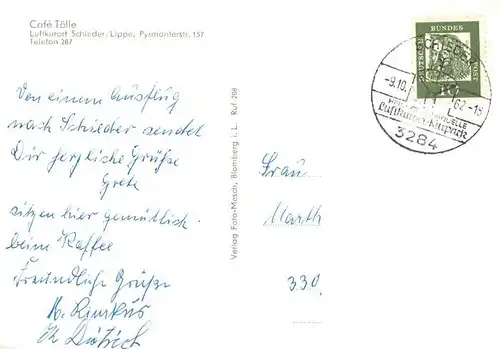 Café Tölle
Luftkurort Schieder/Lippe, Pyrmonterstr. 157
Telefon 287
Von einem Ausflug
nach Schieder sendet
Dir herzliche Grüße
Grete
sitzen hier gemütlich
beim Kaffee
Freundliche Grüße
Verlag Foto-Mesch, Blomberg i. L. Ruf 208
Frau
Marth
330
DEUTSCHE BUNDES POST
10
SCHIEDER
-9.10. 62-18
Luftkurort-Kneippkur
3284